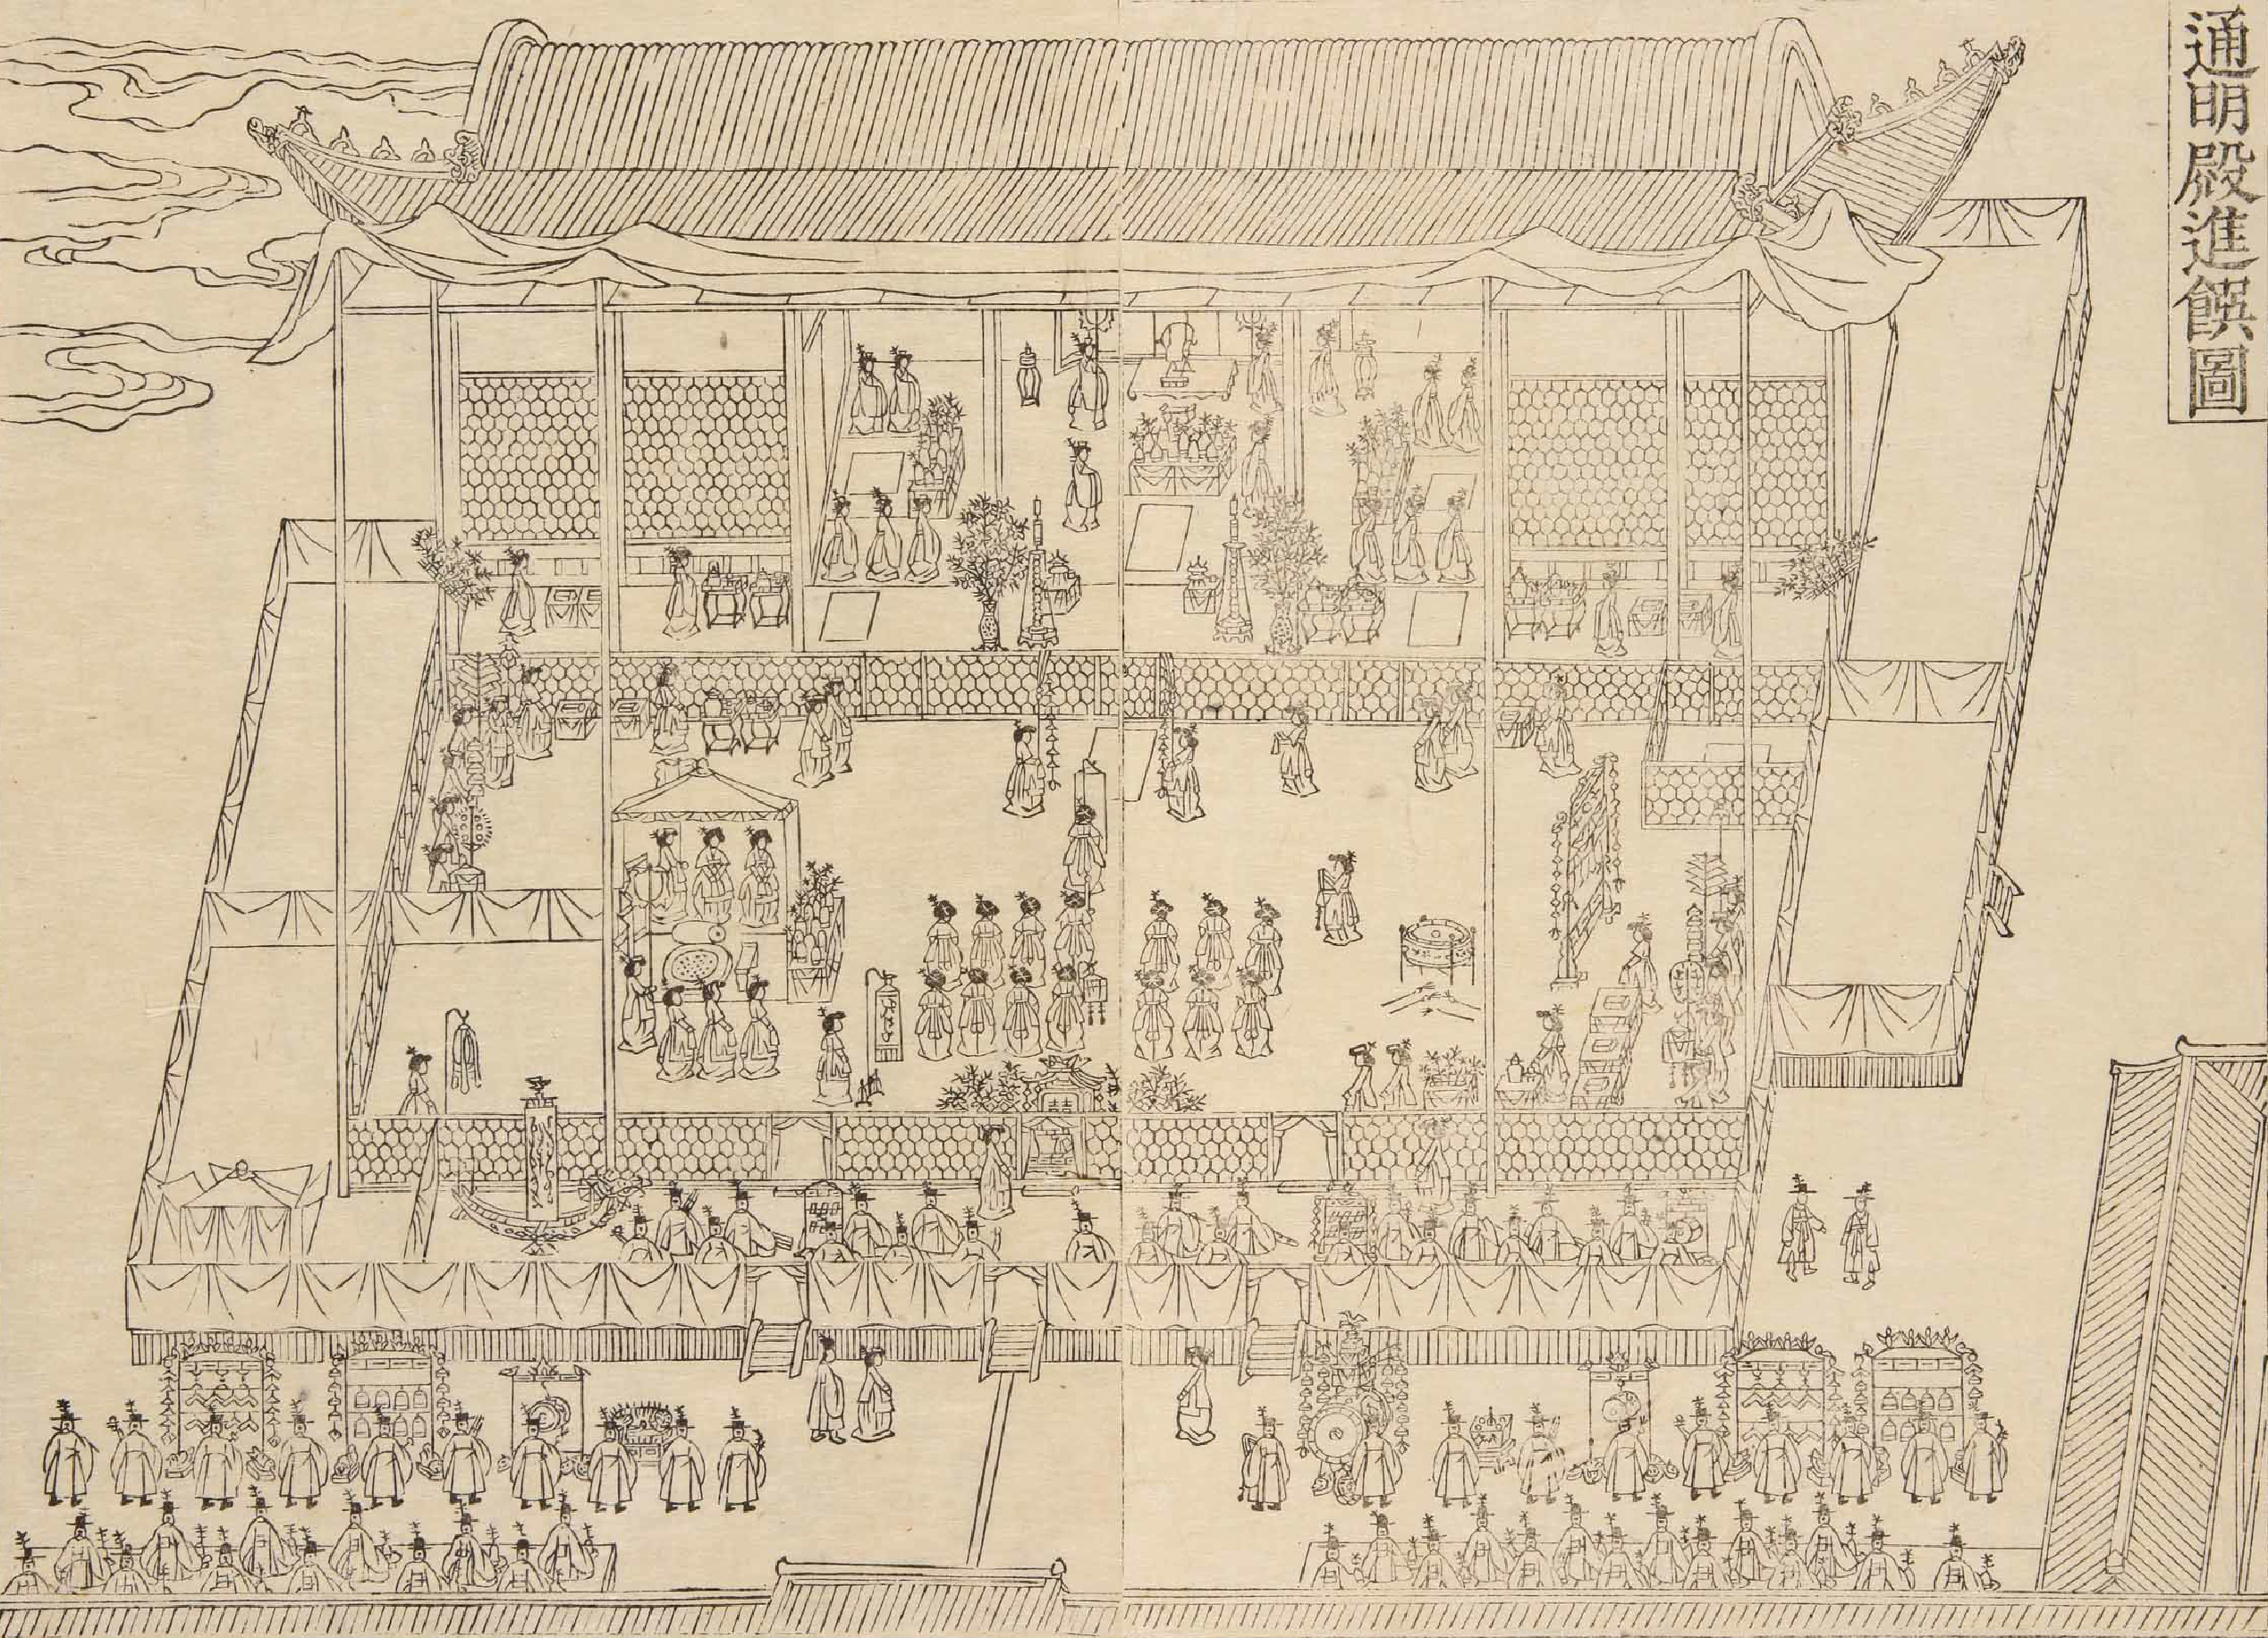 通明殿進饌圖